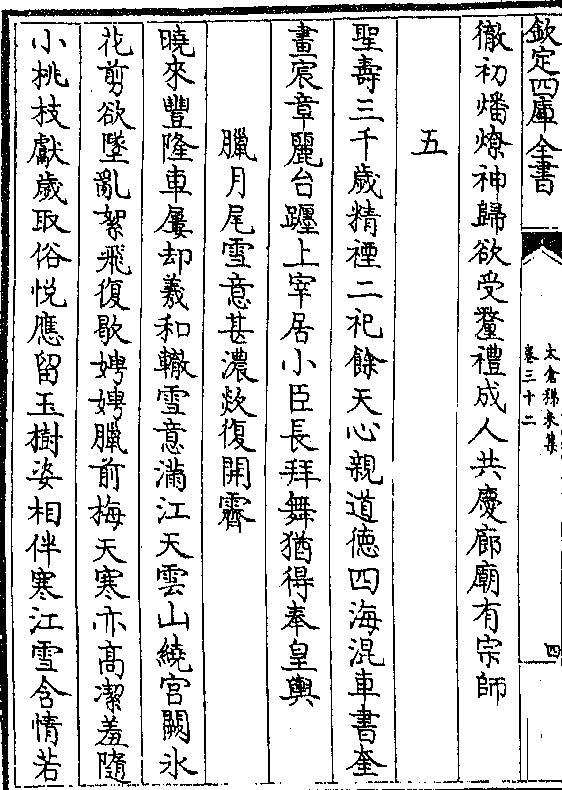 欽定四庫全書
太倉稊米集
卷三十二
四
徹初燔燎神歸欲受釐禮成人共慶廊廟有宗師
五
聖壽三千歲精禋二祀餘天心親道徳四海混車書奎
畫宸章麗台躔上宰居小臣長拜舞猶得奉皇輿
臘月尾雪意甚濃欻復開霽
曉來豐隆車屢却羲和轍雪意滿江天雲山繞宫闕氷
花剪欲墜亂絮飛復歇娉娉臘前梅天寒亦髙潔羞隨
小桃枝獻歲取俗悦應留玉樹姿相伴寒江雪含情若